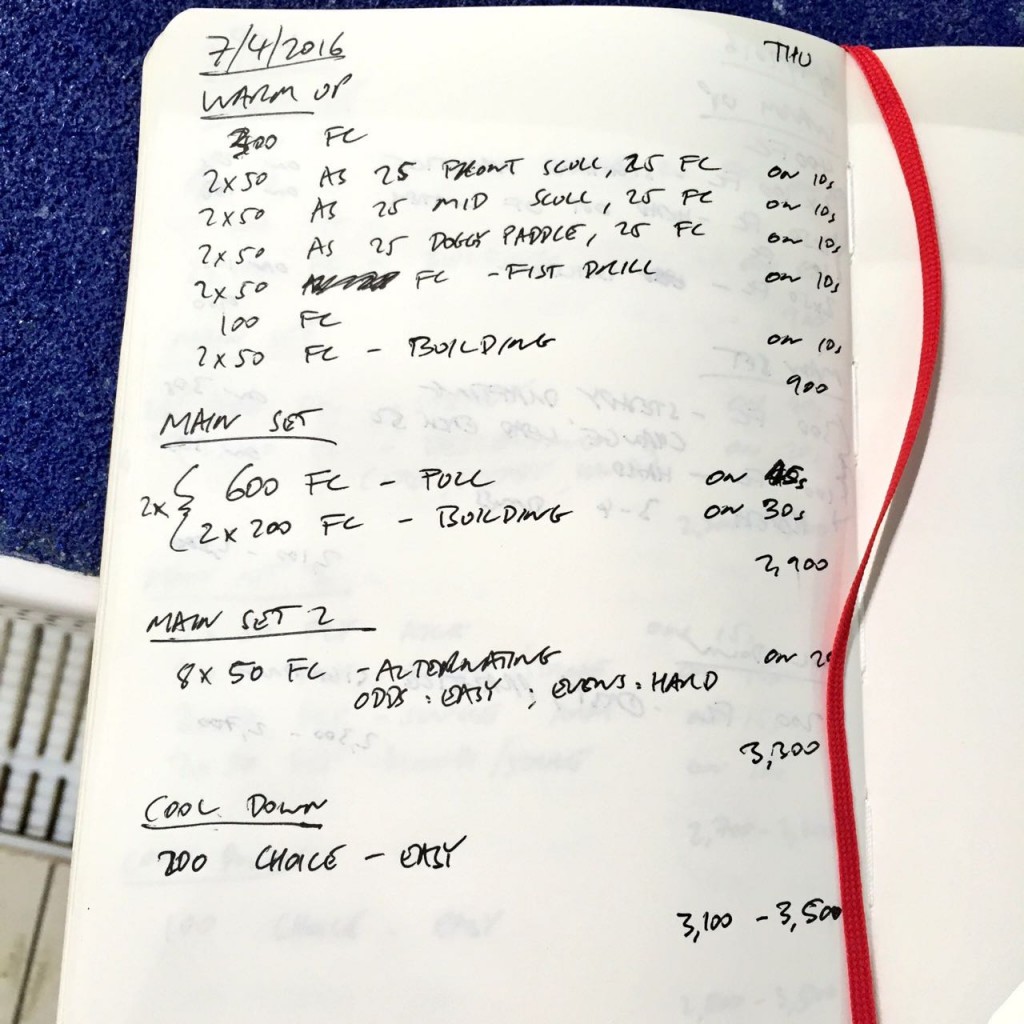 7/4/2016 THU
WARM UP
300 FC
2x50 AS 25 FRONT SCULL, 25 FC ON 10s
2x50 AS 25 MID SCULL, 25 FC ON 10s
2x50 AS 25 DOGGY PADDLE, 25 FC ON 10s
2x50 FC - FIST DRILL ON 10s
100 FC
2x50 FC - BUILDING ON 10s
900
MAIN SET
2x { 600 FC - PULL ON 45s
2x200 FC - BUILDING ON 30s
2,900
MAIN SET 2
8x50 FC - ALTERNATING ON
ODDS: EASY; EVENS: HARD
3,300
COOL DOWN
200 CHOICE - EASY
3,100 - 3,500